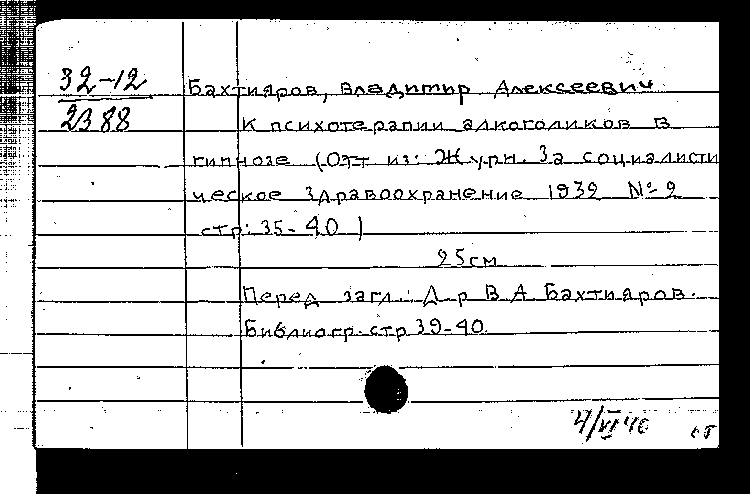 32-12
2388
Бахтияров, Владимир Алексеевич
К психотерапии алкоголиков в
гипнозе (Отт из: Журн. За социалисти
ческое здравоохранение 1932 № 2
стр: 35-40)
25см
Перед загл.: Д-р В А Бахтияров.
Библиогр. стр 39-40.
4/VI 40